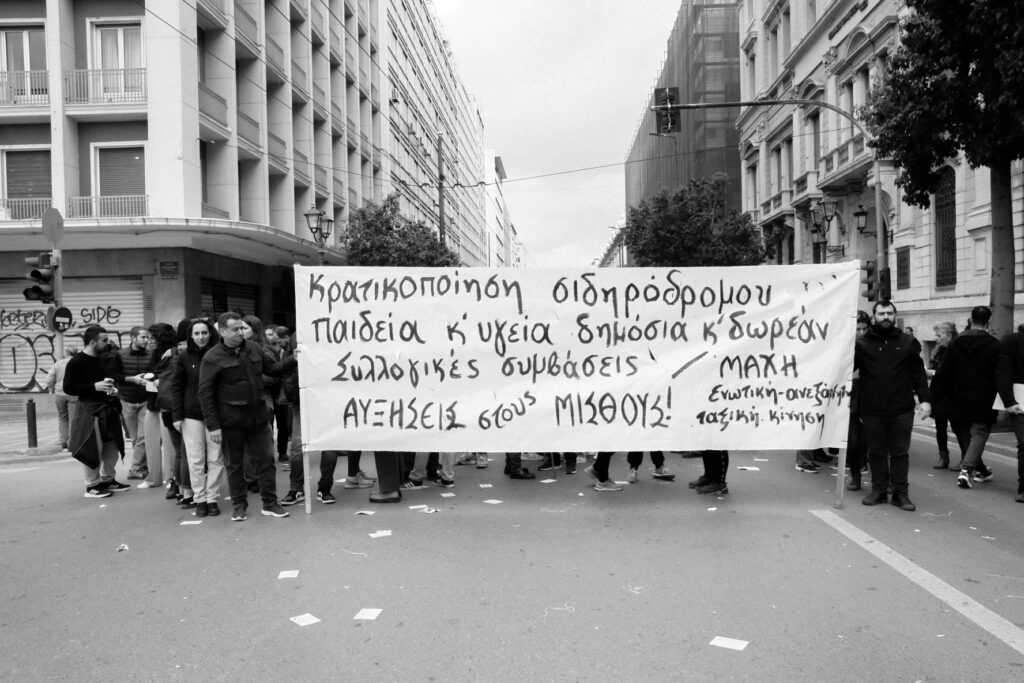 Κρατικοποίηση σιδηρόδρομου
παιδεία κ' υγεία δημόσια κ' δωρεάν
Συλλογικές συμβάσεις
ΑΥΞΗΣΕΙΣ στους ΜΙΣΘΟΥΣ!
ΜΑΧΗ
Ενωτική-ανεξάρτητη
ταξική κίνηση
SIDE